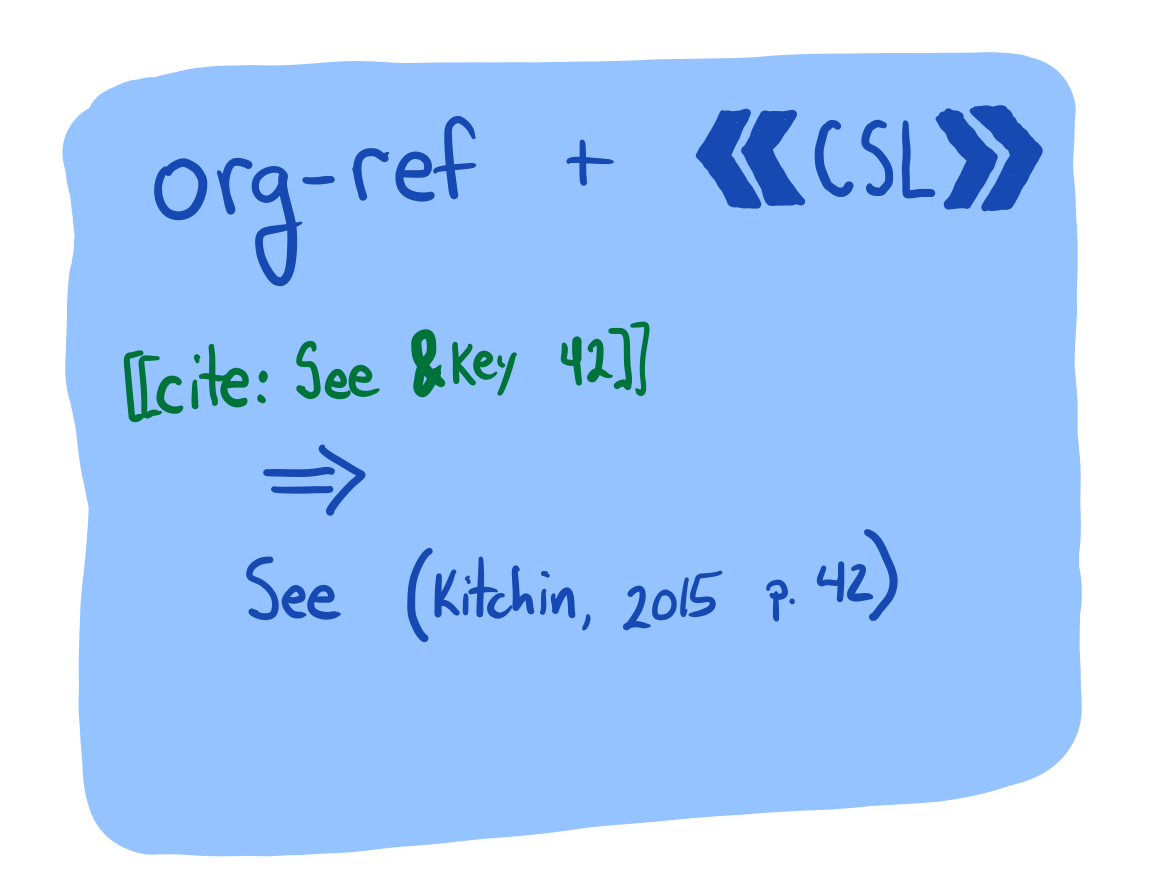 org-ref + «CSL»
[[cite: See &key 42]]
⇒
See (Kitchin, 2015 p. 42)